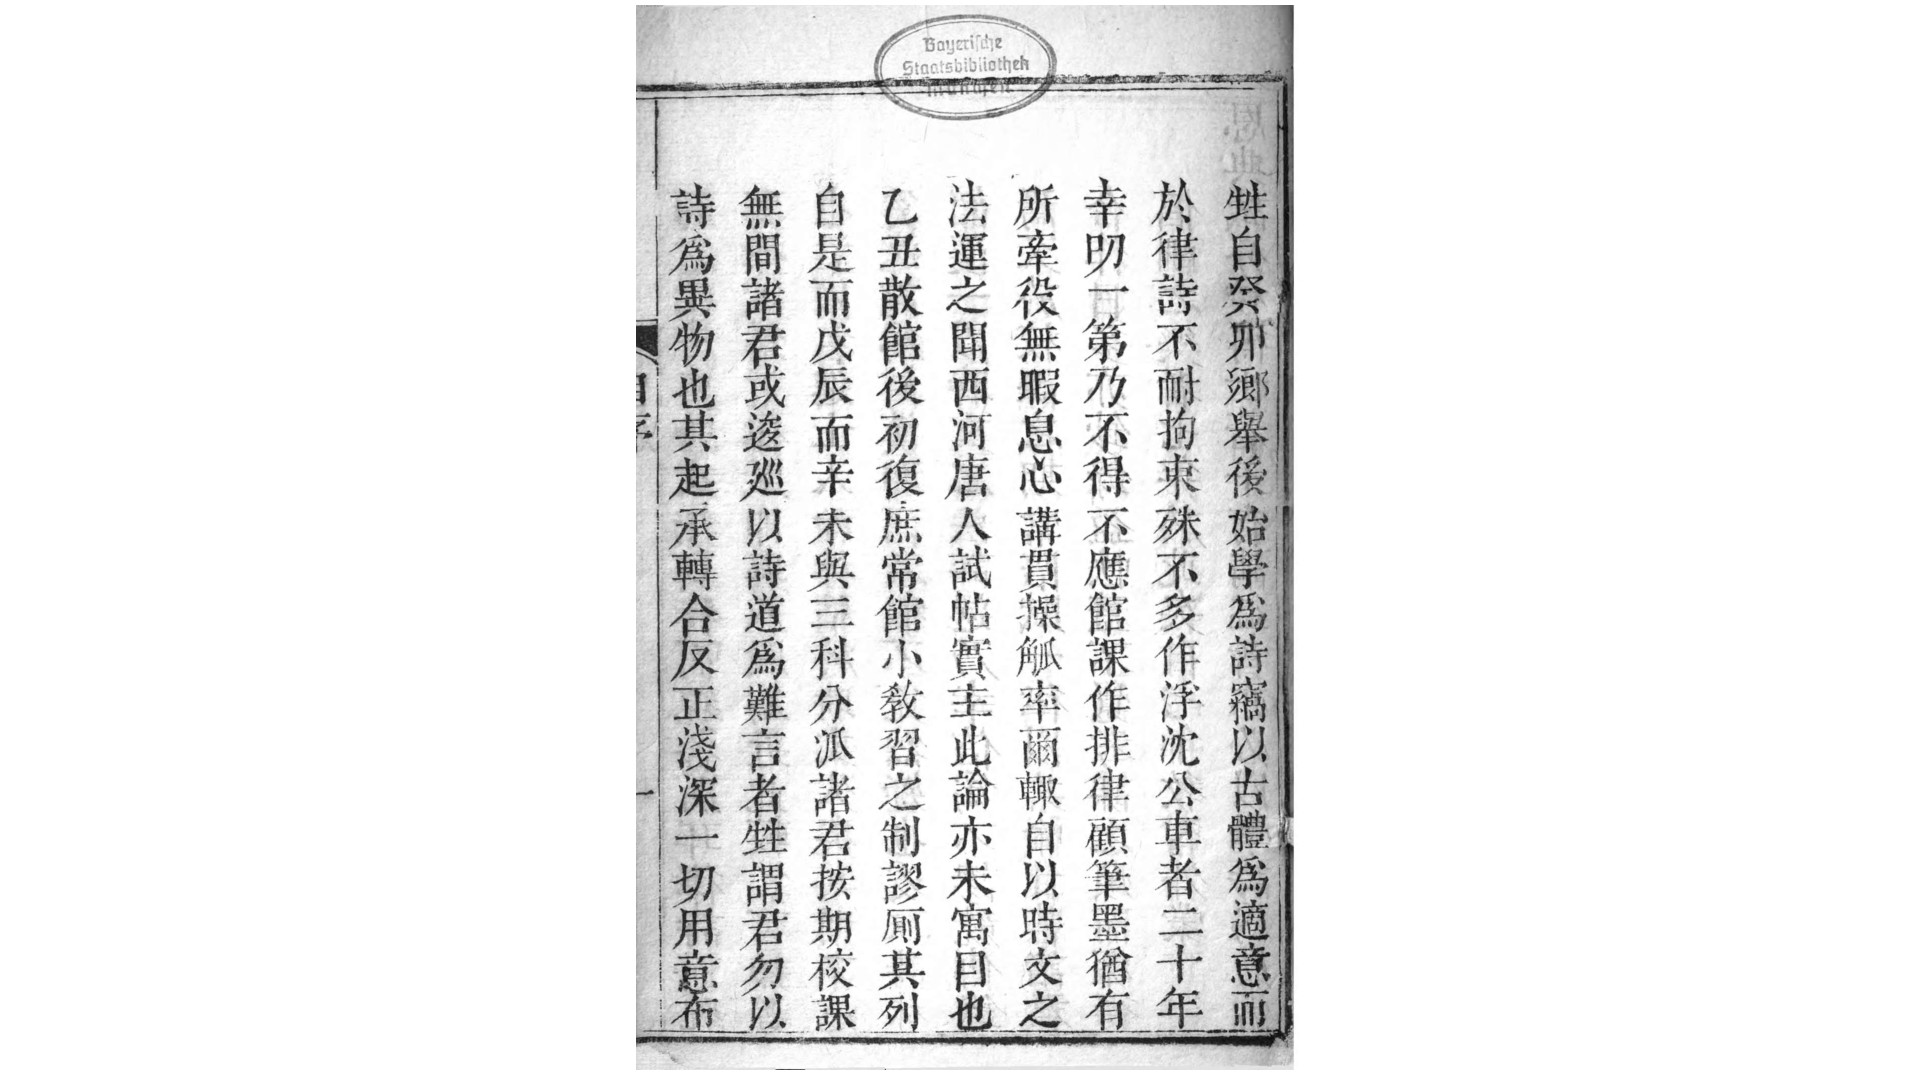 Bayerische
Staatsbibliothek
München
甡自癸卯鄉舉後始學爲詩竊以古體爲適意而
於律詩不耐拘束殊不多作浮沈公車者二十年
幸叨一第乃不得不應館課作排律顧筆墨猶有
所牽役無暇息心講貫操觚率爾輙自以時文之
法運之聞西河唐人試帖實主此論亦未寓目也
乙丑散館後初復庶常館小敎習之制謬厠其列
自是而戊辰而辛未與三科分派諸君按期校課
無間諸君或逡廵以詩道爲難言者甡謂君勿以
詩爲異物也其起承轉合反正淺深一切用意布
自序
一